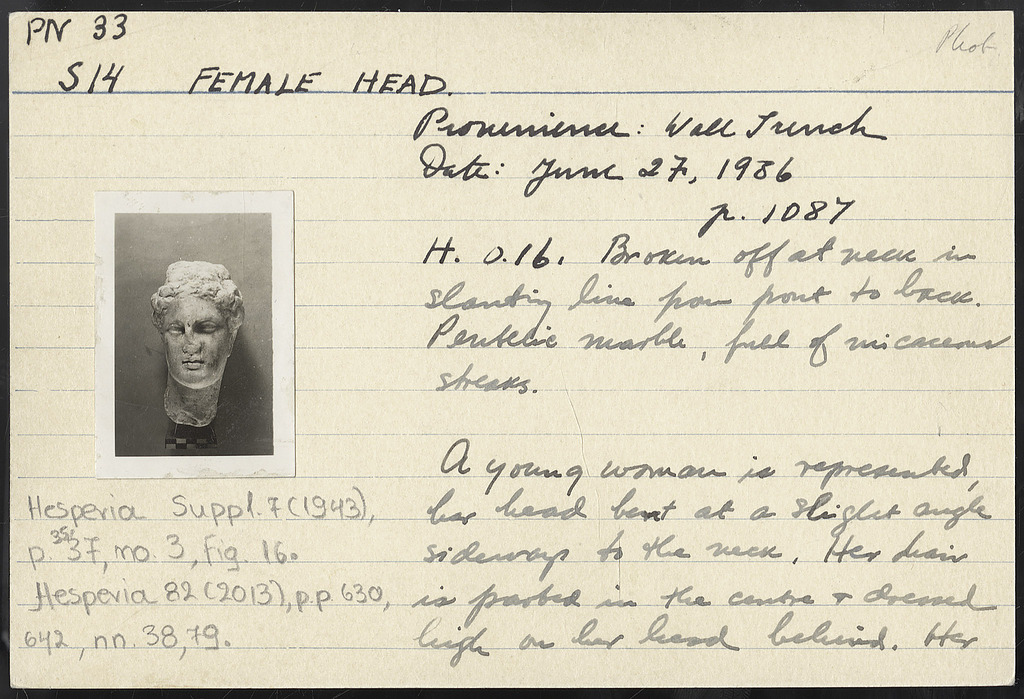 PN 33
Phot
S 14 FEMALE HEAD.
Provenience: Wall Trench
Date: June 27, 1936
p. 1087
H. 0.16. Broken off at neck in
slanting line from front to back.
Pentelic marble, full of micaceous
streaks.
A young woman is represented,
her head bent at a slight angle
sideways to the neck. Her hair
is parted in the centre + dressed
high on her head behind. Her
Hesperia Suppl. 7 (1943),
p. 37, no. 3, Fig. 16.
Hesperia 82 (2013), p.p. 630,
642, nn. 38, 79.